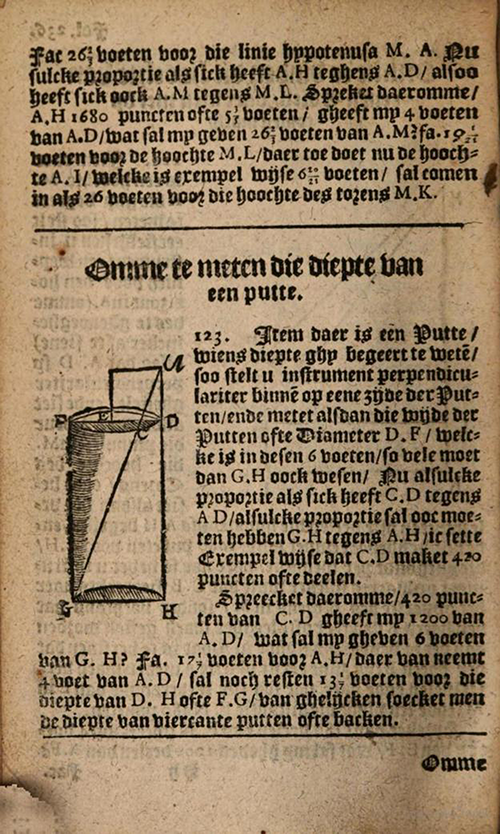 Fac 26⅔ voeten voor die linie hypotenusa M. A. Nu
sulcke proportie als sick heeft A.H teghens A.D/ alsoo
heeft sick oock A.M tegens M.L. Spreket daeromme/
A.H 1680 puncten ofte voeten / gheeft my 4 voeten
van A.D/wat sal my geven 26⅔ voeten van A.M? fa.
voeten voor de hoochte M.L/daer toe doet nu de hooch-
te A. I/ welcke is exempel wyse voeten/ sal comen
in als 26 voeten voor die hoochte des torens M.K.
Omme te meten die diepte van
een putte.
123. Item daer is een Putte /
wiens diepte ghy begeert te wetē/
soo stelt u instrument perpendicu-
lariter binnē op eene zyde der Put-
ten/ende metet alsdan die wyde der
Putten ofte Diameter D. F / welc-
ke is in desen 6 voeten/so vele moet
dan G.H oock wesen/ Nu alsulcke
proportie als sick heeft C.D tegens
A D/alsulcke proportie sal ooc moe-
ten hebben G.H tegens A.H/ic sette
Exempel wyse dat C.D maket 420
puncten ofte deelen.
Spreecket daeromme/420 punc-
ten van C. D gheeft my 1200 van
A. D/ wat sal my gheven 6 voeten
van G. H? Fa. 17⅐ voeten voor A.H/ daer van neemt
4 voet van A.D / sal noch resten 13⅐ voeten voor die
diepte van D. H ofte F.G/ van ghelijcken soecket men
de diepte van viercante putten ofte backen.
Omme
A
F E D
C
G H